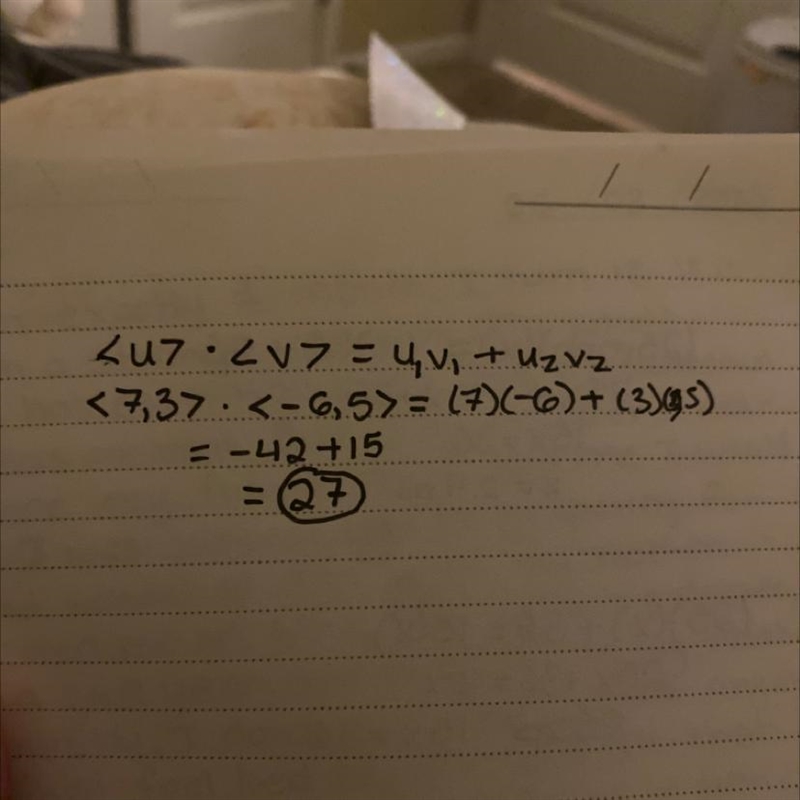 / /
<u> · <v> = u₁v₁ + u₂v₂
<7,3> · <-6,5> = (7)(-6) + (3)(5)
= -42+15
= 27